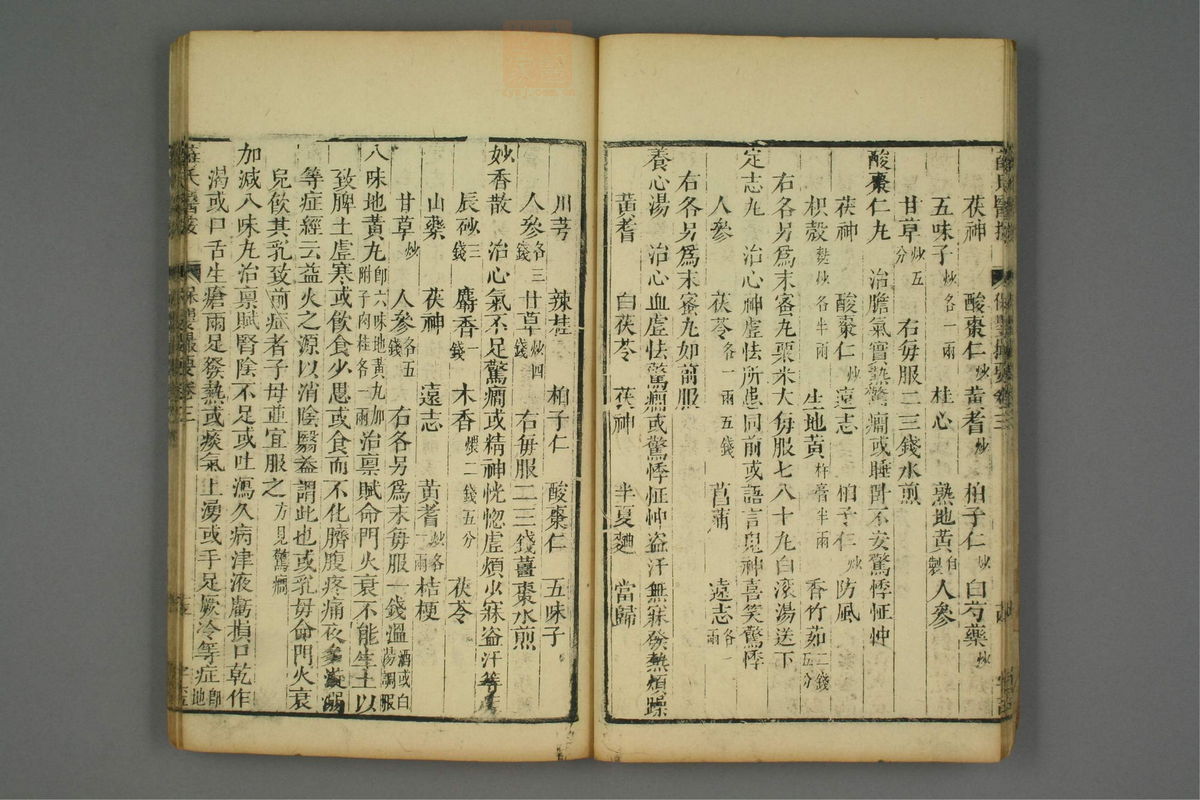 茯神 酸棗仁炒 黃耆炒 柏子仁炒 白芍藥炒
五味子炒各一兩 桂心 熟地黃自製 人參
甘草炒五分 右每服二三錢水煎
酸棗仁丸 治膽氣實熱驚癎或睡臥不安驚悸怔忡
茯神 酸棗仁炒 遠志 柏子仁炒 防風
枳殼麩炒各半兩 生地黃杵膏半兩 香竹茹二錢五分
右各另爲末蜜丸粟米大每服七八十丸白滾湯送下
定志丸 治心神虛怯所患同前或語言鬼神喜笑驚悸
人參 茯苓各一兩五錢 菖蒲 遠志各一兩
右各另爲末蜜丸如前服
養心湯 治心血虛怯驚癎或驚悸怔忡盜汗無寐發熱煩躁
黃耆 白茯苓 茯神 半夏麯 當歸
川芎 辣桂 柏子仁 酸棗仁 五味子
人參各三錢 甘草炒四錢 右每服二三錢薑棗水煎
妙香散 治心氣不足驚癎或精神恍惚虛煩少寐盜汗等症
辰砂三錢 麝香一錢 木香煨二錢五分 茯苓
山藥 茯神 遠志 黃耆炒各一兩 桔梗
甘草炒 人參各五錢 右各另爲末每服一錢溫酒或白湯調服
八味地黃丸卽六味地黃丸加附子肉桂各一兩治禀賦命門火衰不能生土以
致脾土虛寒或飲食少思或食而不化臍腹疼痛夜多漩溺
等症經云益火之源以消陰翳葢謂此也或乳母命門火衰
兒飲其乳致前症者子母並宜服之方見驚癎
加减八味丸治禀賦腎陰不足或吐瀉久病津液虧損口乾作
渴或口舌生瘡兩足發熱或痰氣上湧或手足厥冷等症卽地
薛氏醫按 保嬰撮要卷三